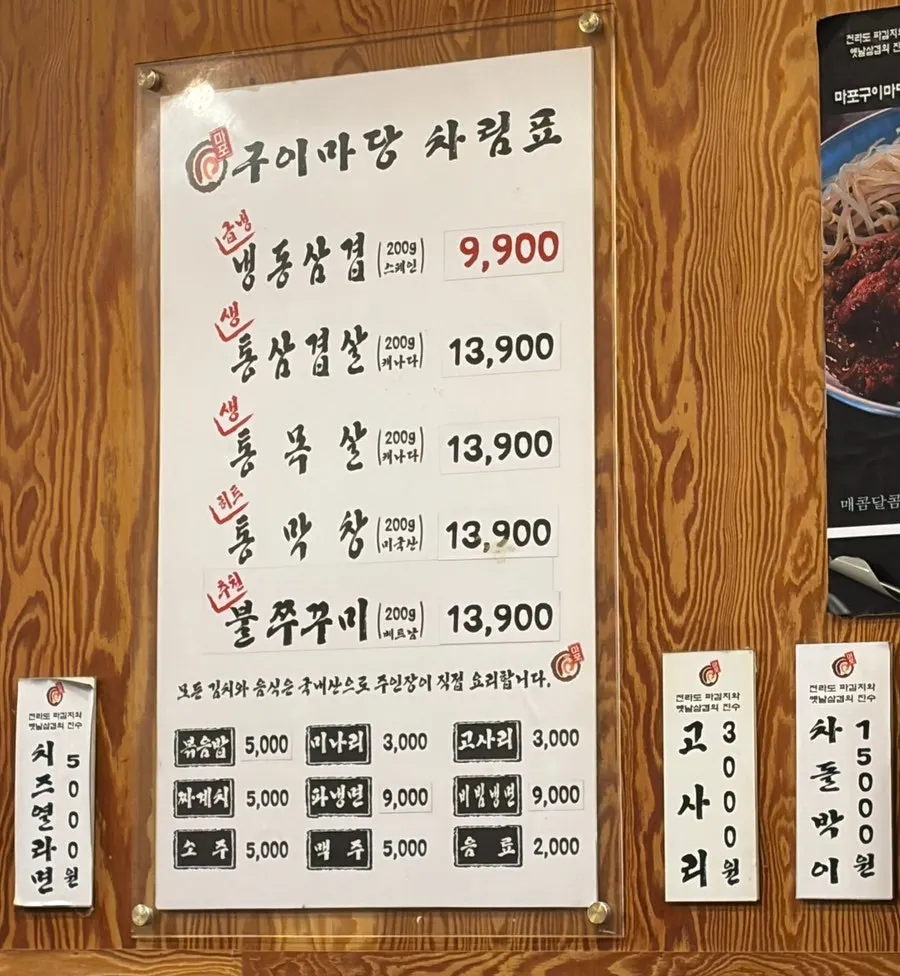 마포
구이마당 차림표
급냉
냉동삼겹 (200g 스페인) 9,900
생
통삼겹살 (200g 캐나다) 13,900
생
통목살 (200g 캐나다) 13,900
히트
통막창 (200g 미국산) 13,900
추천
불쭈꾸미 (200g 베트남) 13,900
모든 김치와 음식은 국내산으로 주인장이 직접 요리합니다.
마포
볶음밥 5,000 미나리 3,000 고사리 3,000
짜계치 5,000 파냉면 9,000 비빔냉면 9,000
소주 5,000 맥주 5,000 음료 2,000
전라도 파김치와
옛날삼겹의 진수
치즈열라면
5000원
전라도 파김지와
옛날삼겹의 진수
고사리
3000원
전라도 파김지와
옛날삼겹의 진수
차돌박이
15000원
전라도 파김지와
옛날삼겹의 진
마포구이마
매콤달콤